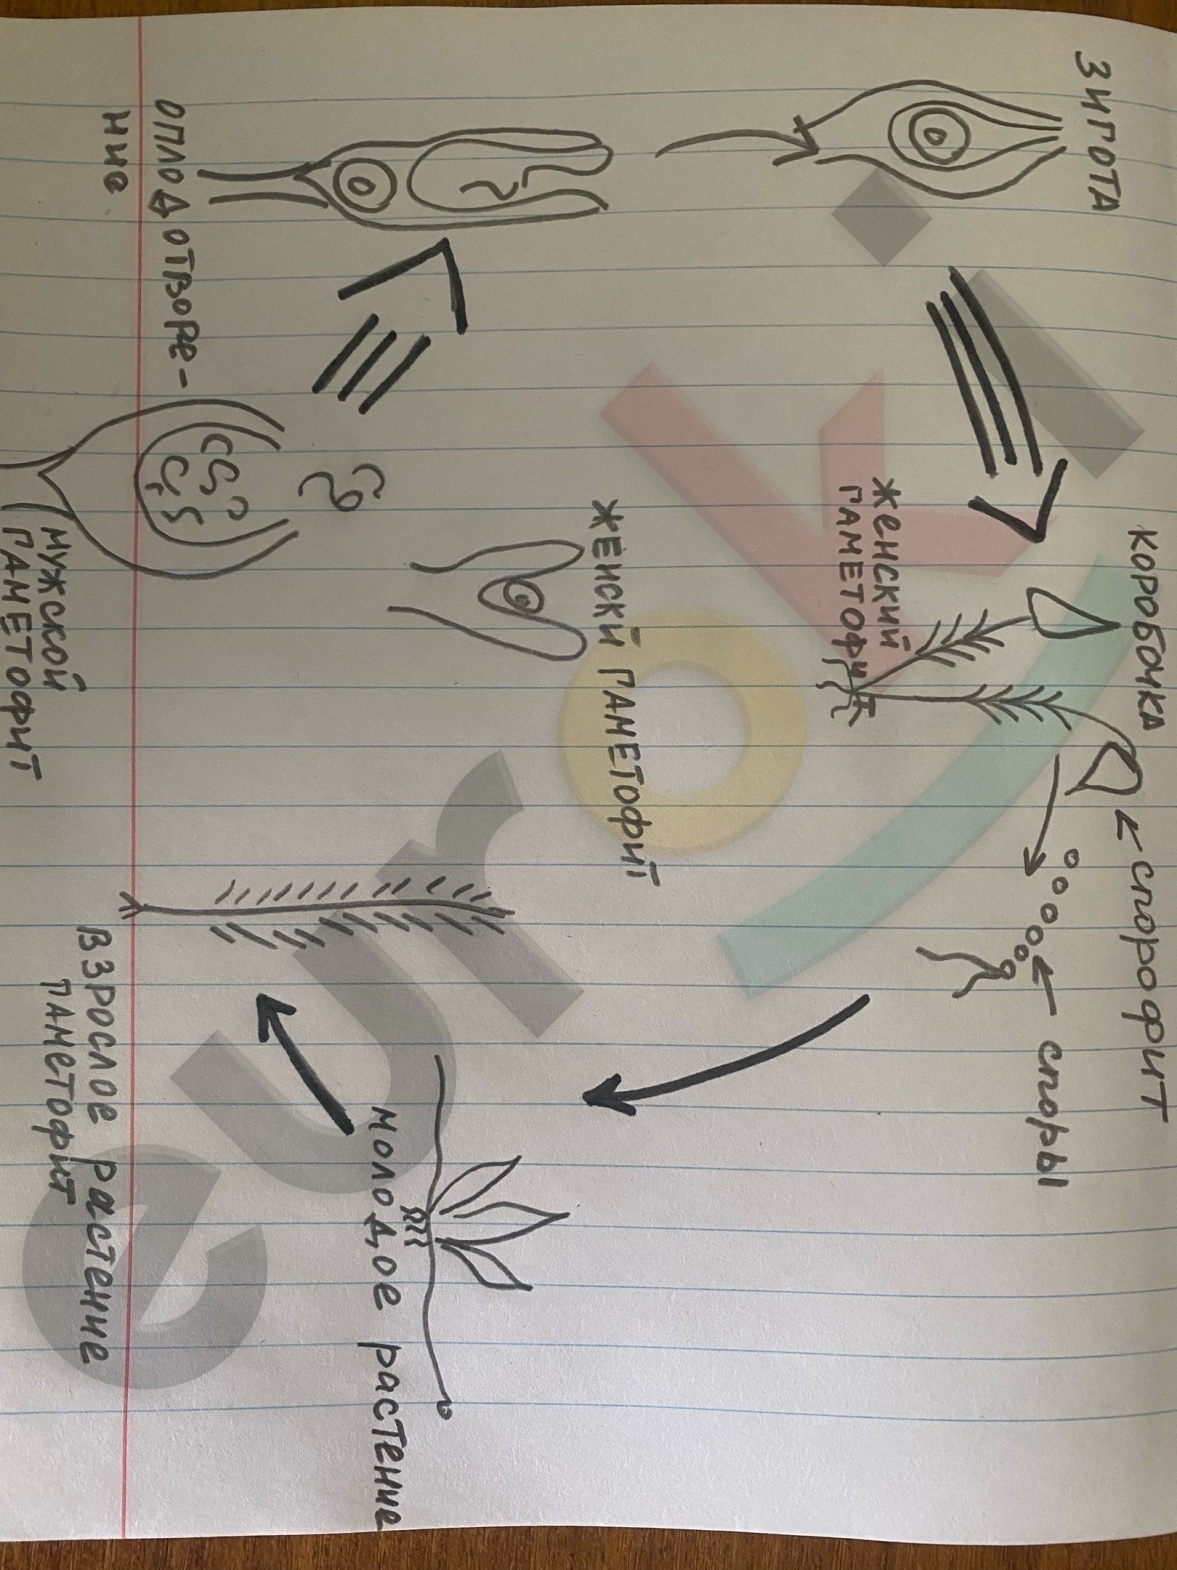 ЗИГОТА
КОРОБОЧКА
← СПОРОФИТ
← СПОРЫ
ЖЕНСКИЙ
ГАМЕТОФИТ
ОПЛОДОТВОРЕ-
НИЕ
ЖЕНСКЙ ГАМЕТОФИТ
МУЖСКОЙ
ГАМЕТОФИТ
МОЛОДОЕ растение
ВЗРОСЛОЕ растение
ГАМЕТОФИТ
euroki